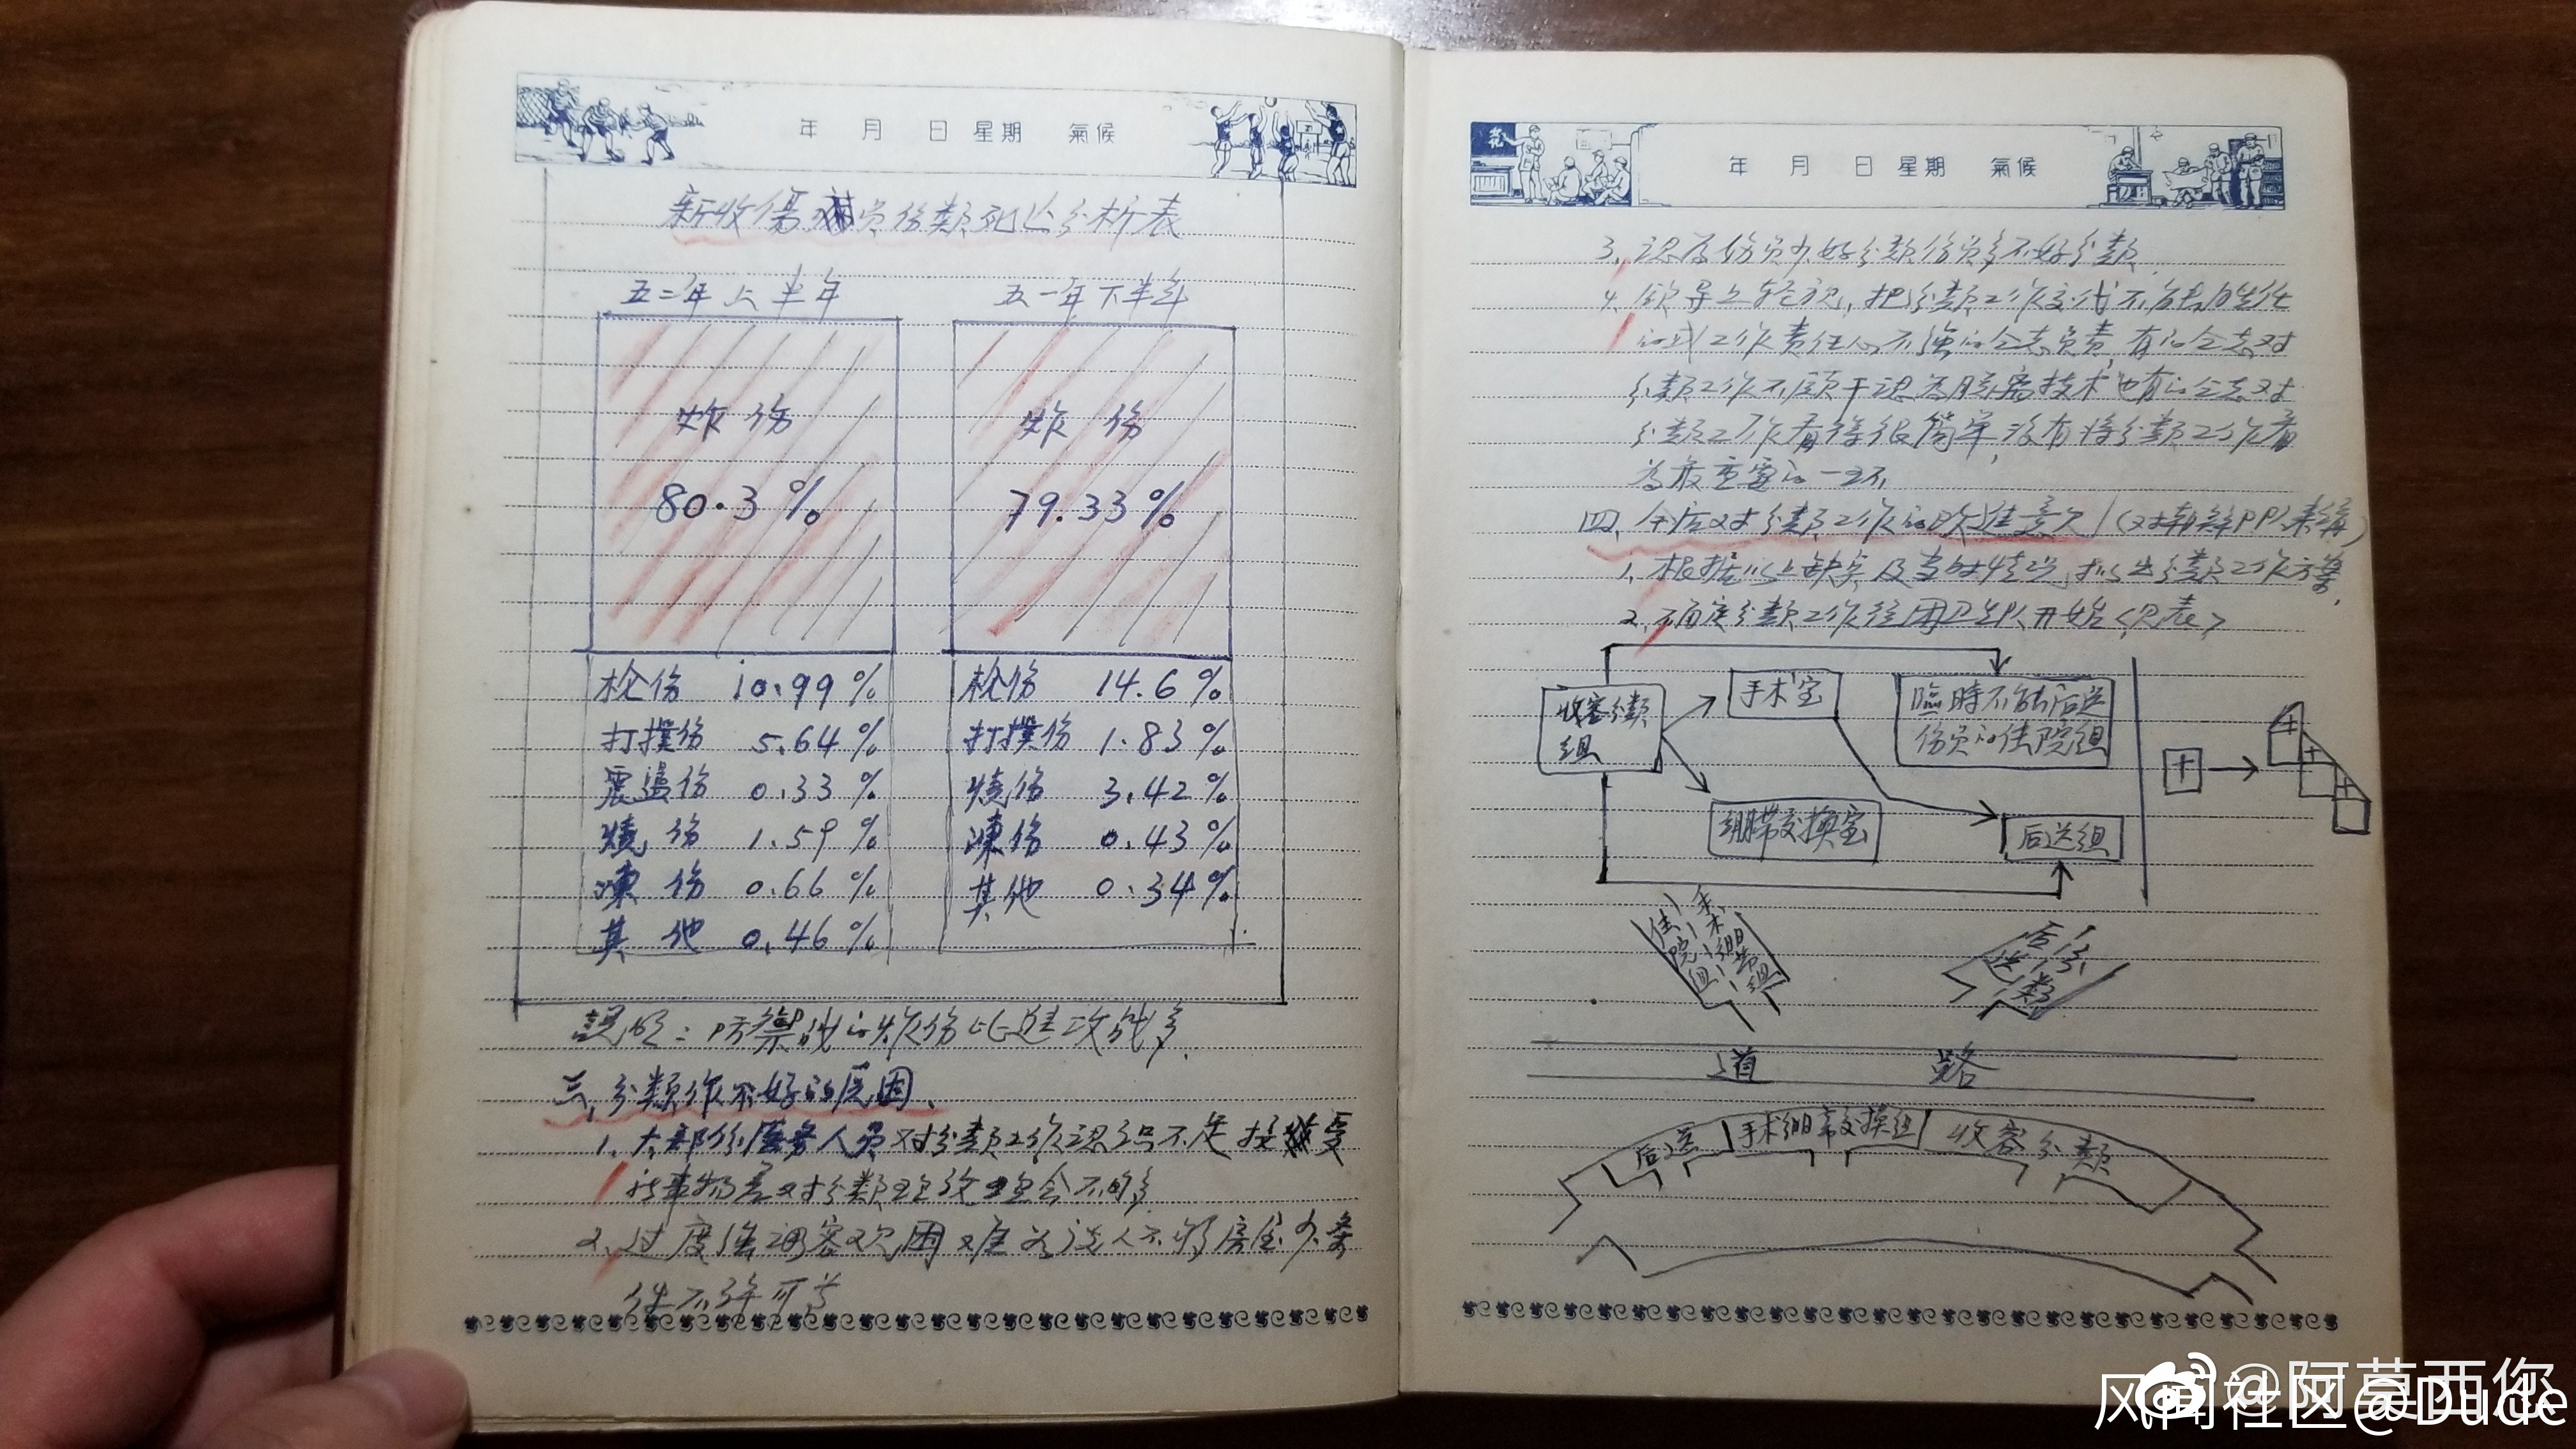 年 月 日 星期 氣候
新收傷員伤類死亡分析表
五二年上半年 五一年下半年
炸伤 炸伤
80.3% 79.33%
枪伤 10.99% 枪伤 14.6%
打撲伤 5.64% 打撲伤 1.83%
震盪伤 0.33% 燒伤 3.42%
燒伤 1.59% 凍伤 0.43%
凍伤 0.66% 其他 0.34%
其他 0.46%
説明：防禦战的炸伤比進攻战多.
三、分類作不好的原因、
1. 大部份医务人員对分類工作認识不足接受
新事物差对分類理会不够
2. 过度強調客观困难说人不够房屋少条
件不许可
年 月 日 星期 氣候
3. 認为伤员少好分類伤员多不好分類
4. 領导上轻視，把分類工作交代不能胜任
的或工作責任心不強的仝志负责，有的仝志对
分類工作不願干認为脱离技术也有的仝志对
分類工作看得很簡单，没有将分類工作看
为最重要的一环
四、今后对分類工作的改進意见
1. 根据以上缺点及当时情况，拟出分類工作方案，
2. 分類工作從团卫生队开始<见表>
收容分類組
手术室
臨時不能后送伤员的住院組
绷帶交换室
后送組
住院組 手术 绷帶組
后送分類
道 路
后送 手术绷帶交换組 收容分類
@阿莫西您
风闻社区@Dude